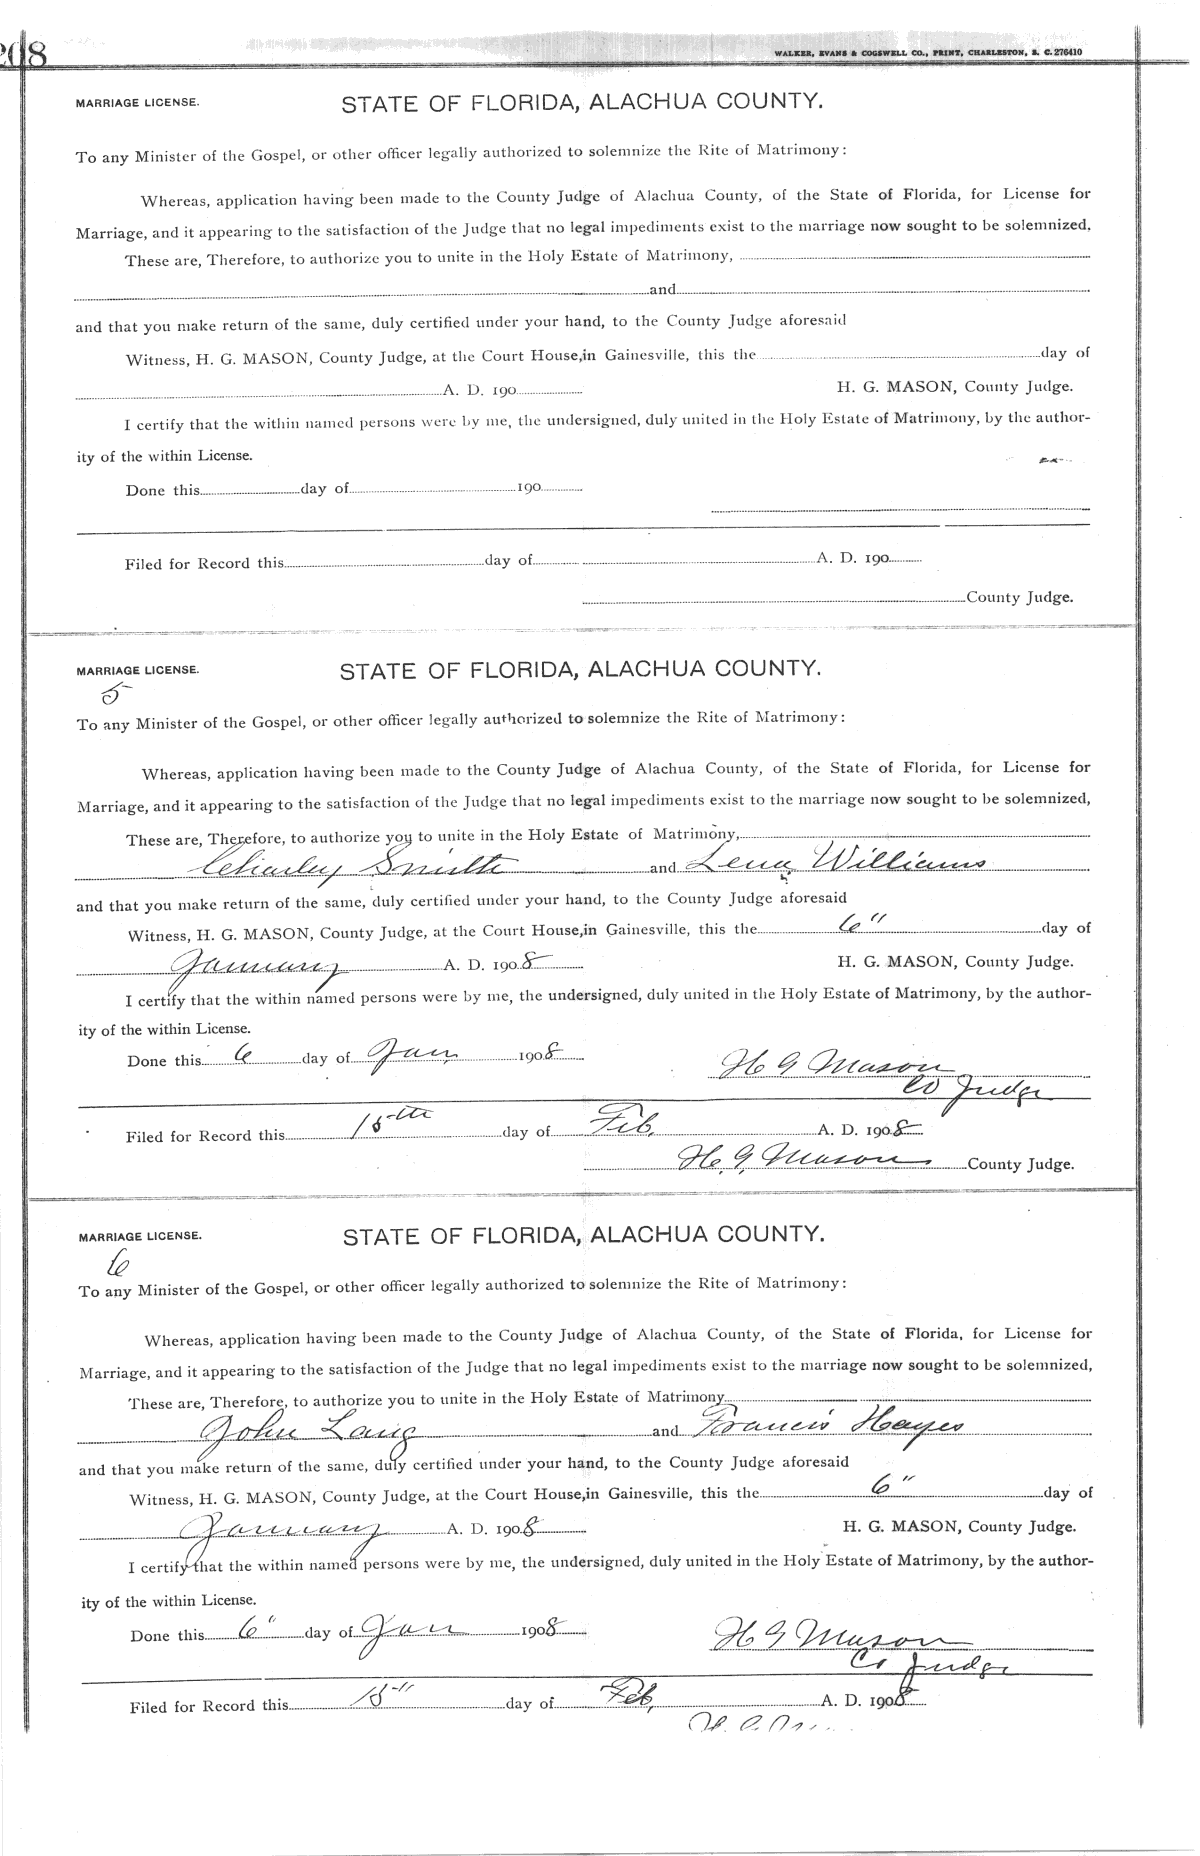 208
WALKER, EVANS & COGSWELL CO., PRINT, CHARLESTON, S. C. 276410
MARRIAGE LICENSE. STATE OF FLORIDA, ALACHUA COUNTY.
To any Minister of the Gospel, or other officer legally authorized to solemnize the Rite of Matrimony:
Whereas, application having been made to the County Judge of Alachua County, of the State of Florida, for License for
Marriage, and it appearing to the satisfaction of the Judge that no legal impediments exist to the marriage now sought to be solemnized,
These are, Therefore, to authorize you to unite in the Holy Estate of Matrimony,
and
and that you make return of the same, duly certified under your hand, to the County Judge aforesaid
Witness, H. G. MASON, County Judge, at the Court House, in Gainesville, this the day of
A. D. 190 H. G. MASON, County Judge.
I certify that the within named persons were by me, the undersigned, duly united in the Holy Estate of Matrimony, by the author-
ity of the within License.
Done this day of 190
Filed for Record this day of A. D. 190
County Judge.
MARRIAGE LICENSE. STATE OF FLORIDA, ALACHUA COUNTY.
5
To any Minister of the Gospel, or other officer legally authorized to solemnize the Rite of Matrimony:
Whereas, application having been made to the County Judge of Alachua County, of the State of Florida, for License for
Marriage, and it appearing to the satisfaction of the Judge that no legal impediments exist to the marriage now sought to be solemnized,
These are, Therefore, to authorize you to unite in the Holy Estate of Matrimony,
Charley Smith and Lena Williams
and that you make return of the same, duly certified under your hand, to the County Judge aforesaid
Witness, H. G. MASON, County Judge, at the Court House, in Gainesville, this the 6" day of
January A. D. 1908 H. G. MASON, County Judge.
I certify that the within named persons were by me, the undersigned, duly united in the Holy Estate of Matrimony, by the author-
ity of the within License.
Done this 6 day of Jan 1908 H G Mason
Co Judge
Filed for Record this 15th day of Feb. A. D. 1908
H. G. Mason County Judge.
MARRIAGE LICENSE. STATE OF FLORIDA, ALACHUA COUNTY.
6
To any Minister of the Gospel, or other officer legally authorized to solemnize the Rite of Matrimony:
Whereas, application having been made to the County Judge of Alachua County, of the State of Florida, for License for
Marriage, and it appearing to the satisfaction of the Judge that no legal impediments exist to the marriage now sought to be solemnized,
These are, Therefore, to authorize you to unite in the Holy Estate of Matrimony
John Lang and Francis Hayes
and that you make return of the same, duly certified under your hand, to the County Judge aforesaid
Witness, H. G. MASON, County Judge, at the Court House, in Gainesville, this the 6" day of
January A. D. 1908 H. G. MASON, County Judge.
I certify that the within named persons were by me, the undersigned, duly united in the Holy Estate of Matrimony, by the author-
ity of the within License.
Done this 6" day of Jan 1908 H G Mason
Co Judge
Filed for Record this 15" day of Feb. A. D. 1908